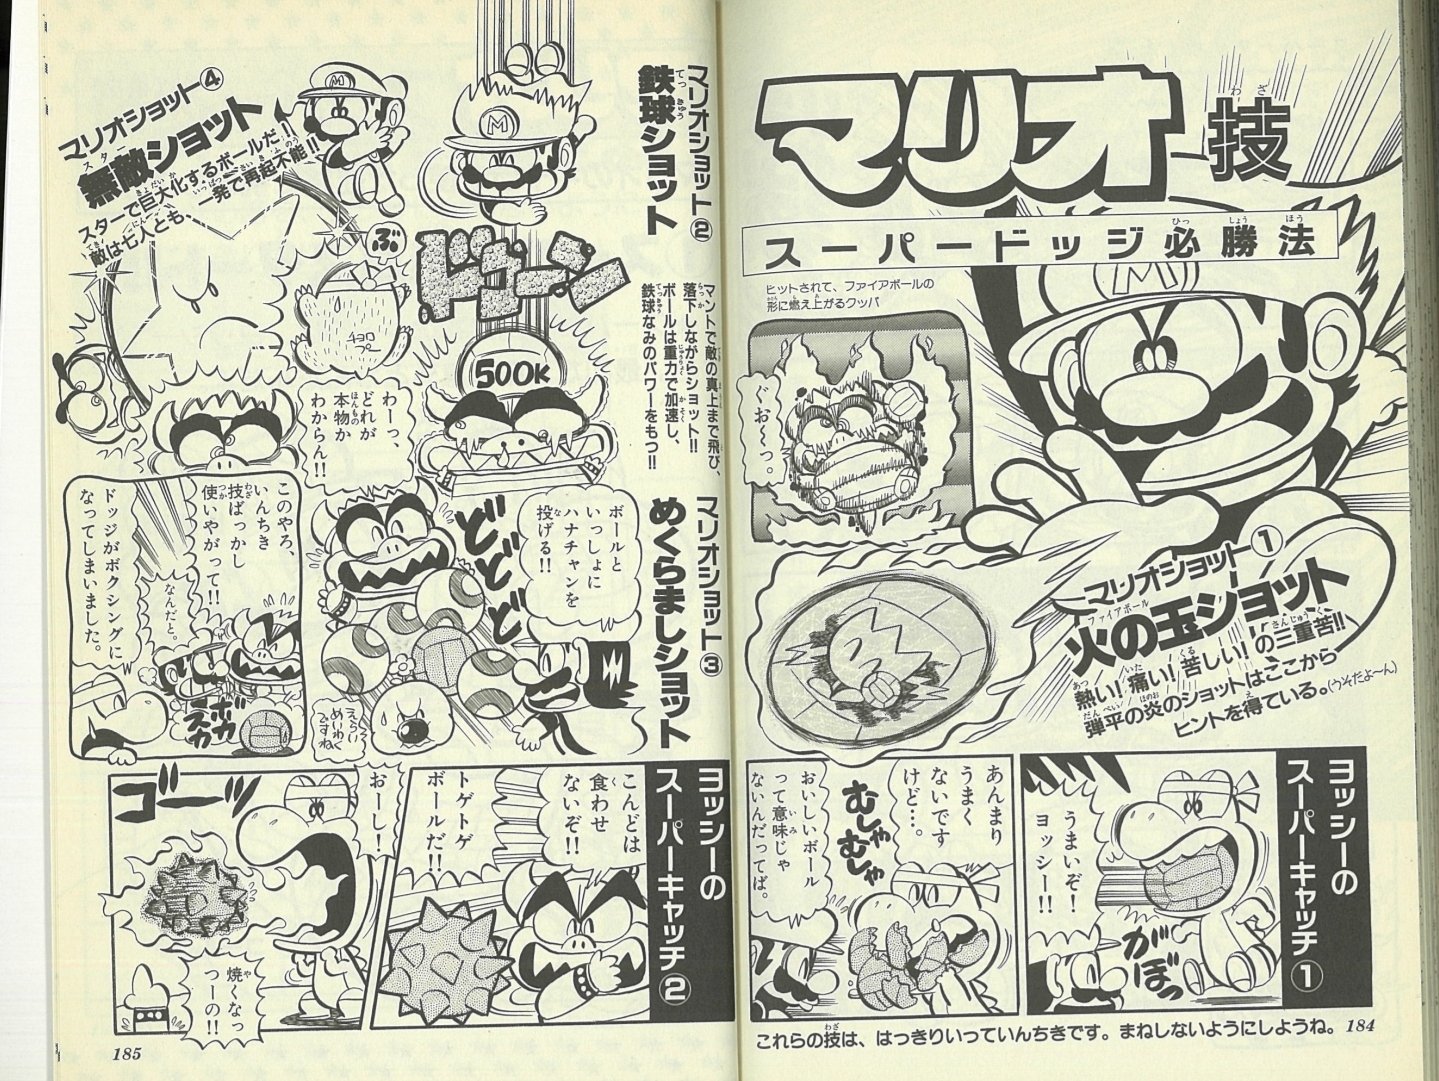 マリオ技
スーパードッジ必勝法
ヒットされて、ファイアボールの
形に燃え上がるクッパ
ぐお〜っ。
マリオショット①
火の玉ショット
ファイアボール
熱い!痛い!苦しい!の三重苦!!
弾平の炎のショットはここから
ヒントを得ている。(うそだよ〜ん)
ヨッシーの
スーパーキャッチ①
うまいぞ!
ヨッシー!!
がぼっ
あんまり
うまく
ないです
けど…。
むしゃ
むしゃ
おいしいボール
って意味じゃ
ないんだってば。
これらの技は、はっきりいっていんちきです。まねしないようにしようね。
184
マリオショット②
鉄球ショット
マントで敵の真上まで飛び、
落下しながらショット!!
ボールは重力で加速し、
鉄球なみのパワーをもつ!!
ドゴーン
500K
マリオショット④
無敵ショット
スター
スターで巨大化するボールだ!
敵は七人とも、一発で再起不能!!
ぶ
チョロ
プー
マリオショット③
めくらましショット
ボールと
いっしょに
ハナチャンを
投げる!!
どどどど
わーっ、
どれが
本物か
わからん!!
えらい
めいわく
ですね
このやろ、
いんちき
技ばっかし
使いやがって!!
なんだと。
ボカ
スカ
ドッジがボクシングに
なってしまいました。
ヨッシーの
スーパーキャッチ②
こんどは
食わせ
ないぞ!!
トゲトゲ
ボールだ!!
おーし!
ゴーッ
焼くなっ
つーの!!
185